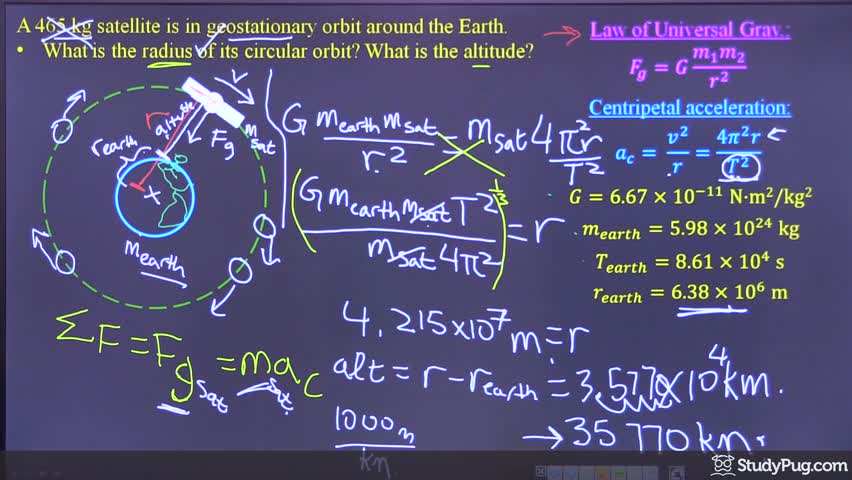 A 465 kg satellite is in geostationary orbit around the Earth.
• What is the radius of its circular orbit? What is the altitude?
Law of Universal Grav.:
F_g = G m_1m_2 / r^2
Centripetal acceleration:
a_c = v^2 / r = 4π^2r / T^2
G = 6.67 × 10^−11 N·m^2/kg^2
m_earth = 5.98 × 10^24 kg
T_earth = 8.61 × 10^4 s
r_earth = 6.38 × 10^6 m
V
altitude
r earth
F_g
m sat
x
m earth
G m earth m sat / r^2 = m sat 4π^2r / T^2
(G m earth m sat T^2 / m sat 4π^2)^1/3 = r
ΣF = F_g sat = m sat a_c
4.215×10^7 m = r
alt = r − r earth = 3.577×10^4 km.
1000 m / km
→ 35 770 km.
StudyPug.com